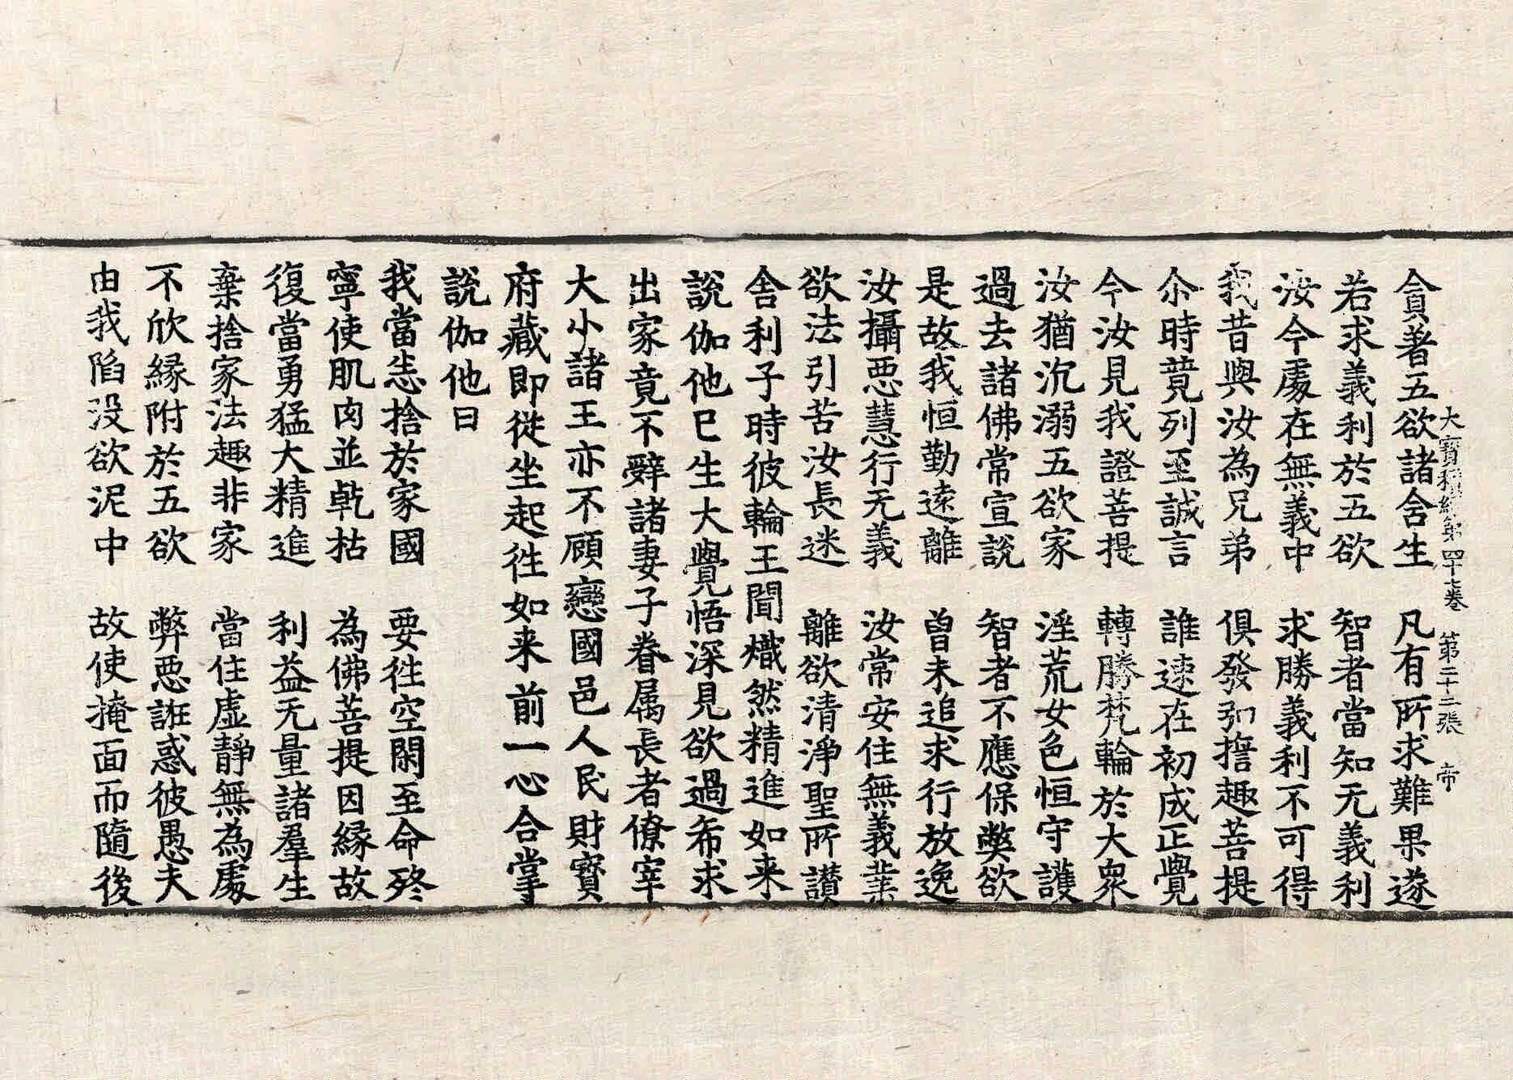 大寶積經第四十七卷　第二十三張　帝
貪著五欲諸含生　凡有所求難果遂
若求義利於五欲　智者當知无義利
汝今處在無義中　求勝義利不可得
我昔與汝為兄弟　俱發弘擔趣菩提
尒時竟列至誠言　誰速在初成正覺
今汝見我證菩提　轉勝梵輪於大衆
汝猶沉溺五欲家　淫荒女色恒守護
過去諸佛常宣說　智者不應保弊欲
是故我恒勤遠離　曾未追求行放逸
汝攝惡慧行无義　汝常安住無義業
欲法引苦汝長迷　離欲清淨聖所讃
舍利子時彼輪王聞熾然精進如来
說伽他已生大覺悟深見欲過希求
出家竟不辭諸妻子眷属長者僚宰
大小諸王亦不顧戀國邑人民財寶
府藏即從坐起徃如来前一心合掌
說伽他曰
我當恙捨於家國　要徃空閑至命終
寧使肌肉並乾枯　為佛菩提因縁故
復當勇猛大精進　利益无量諸羣生
棄捨家法趣非家　當住虛靜無為處
不欣縁附於五欲　弊惡誑惑彼愚夫
由我陷没欲泥中　故使掩面而隨後